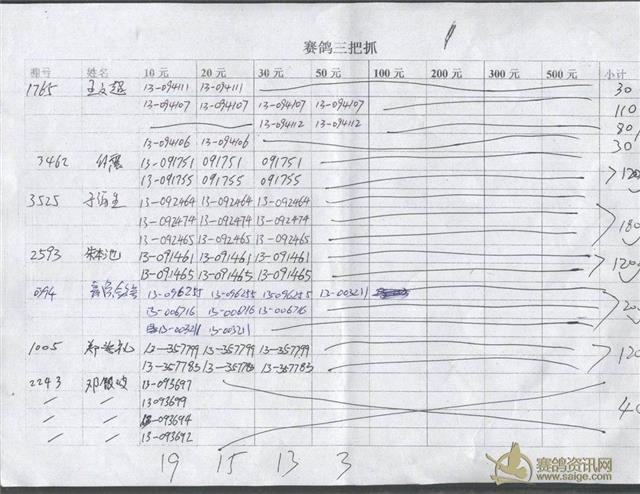 赛鸽三把抓
棚号 姓名 10元 20元 30元 50元 100元 200元 300元 500元 小计
1765 王文超 13-094111 13-094111 30
13-094107 13-094107 13-094107 13-094107 110
13-094112 13-094112 80
13-094106 13-094106 30
3462 13-091751 091751 091751
13-091755 091755 091755 120
3525 13-092464 13-092464 13-092464
13-092474 13-092474 13-092474 180
13-092465 13-092465 13-092465
2593 13-091461 13-091461 13-091461 120
13-091465 13-091465 13-091465
094 13-096255 13-096255 13-096255 13-003211
13-006716 13-006716 13-006716
13-003211 13-003211
1005 13-357799 13-357799 13-357799 120
13-357785 13-357785 13-357785
2243 13-093697
〃 〃 13093699 40
〃 〃 13-093694
〃 〃 13-093692
19 15 13 3
赛鸽资讯网
www.saige.com